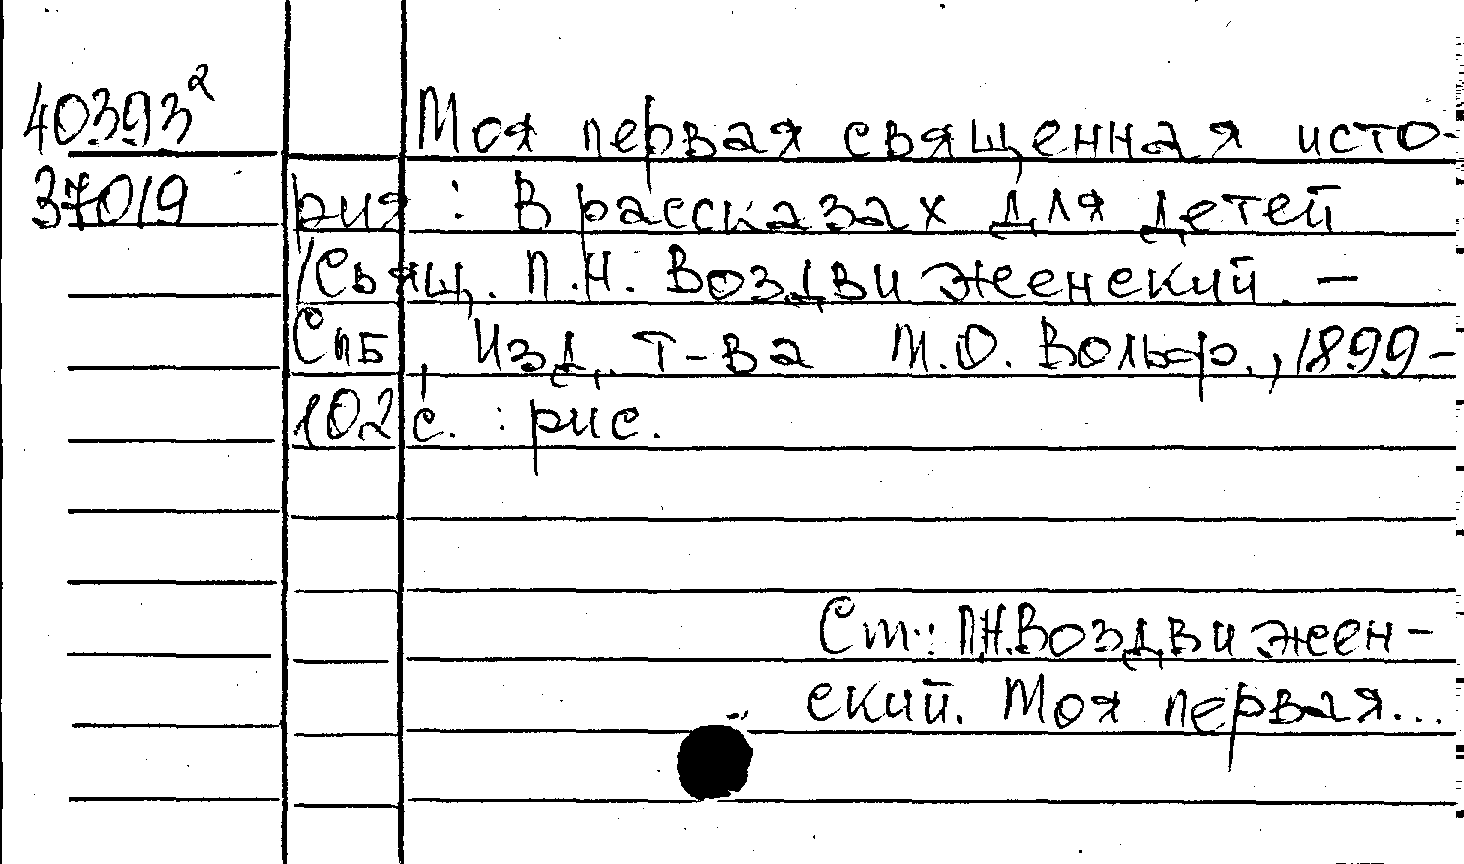 40393²
Моя первая священная исто-
37019
рия : В рассказах для детей
/Свящ. П.Н. Воздвиженский. —
Спб, Изд. т-ва М.О. Вольф., 1899-
102 с. : рис.
Ст.: П.Н.Воздвижен-
ский. Моя первая...